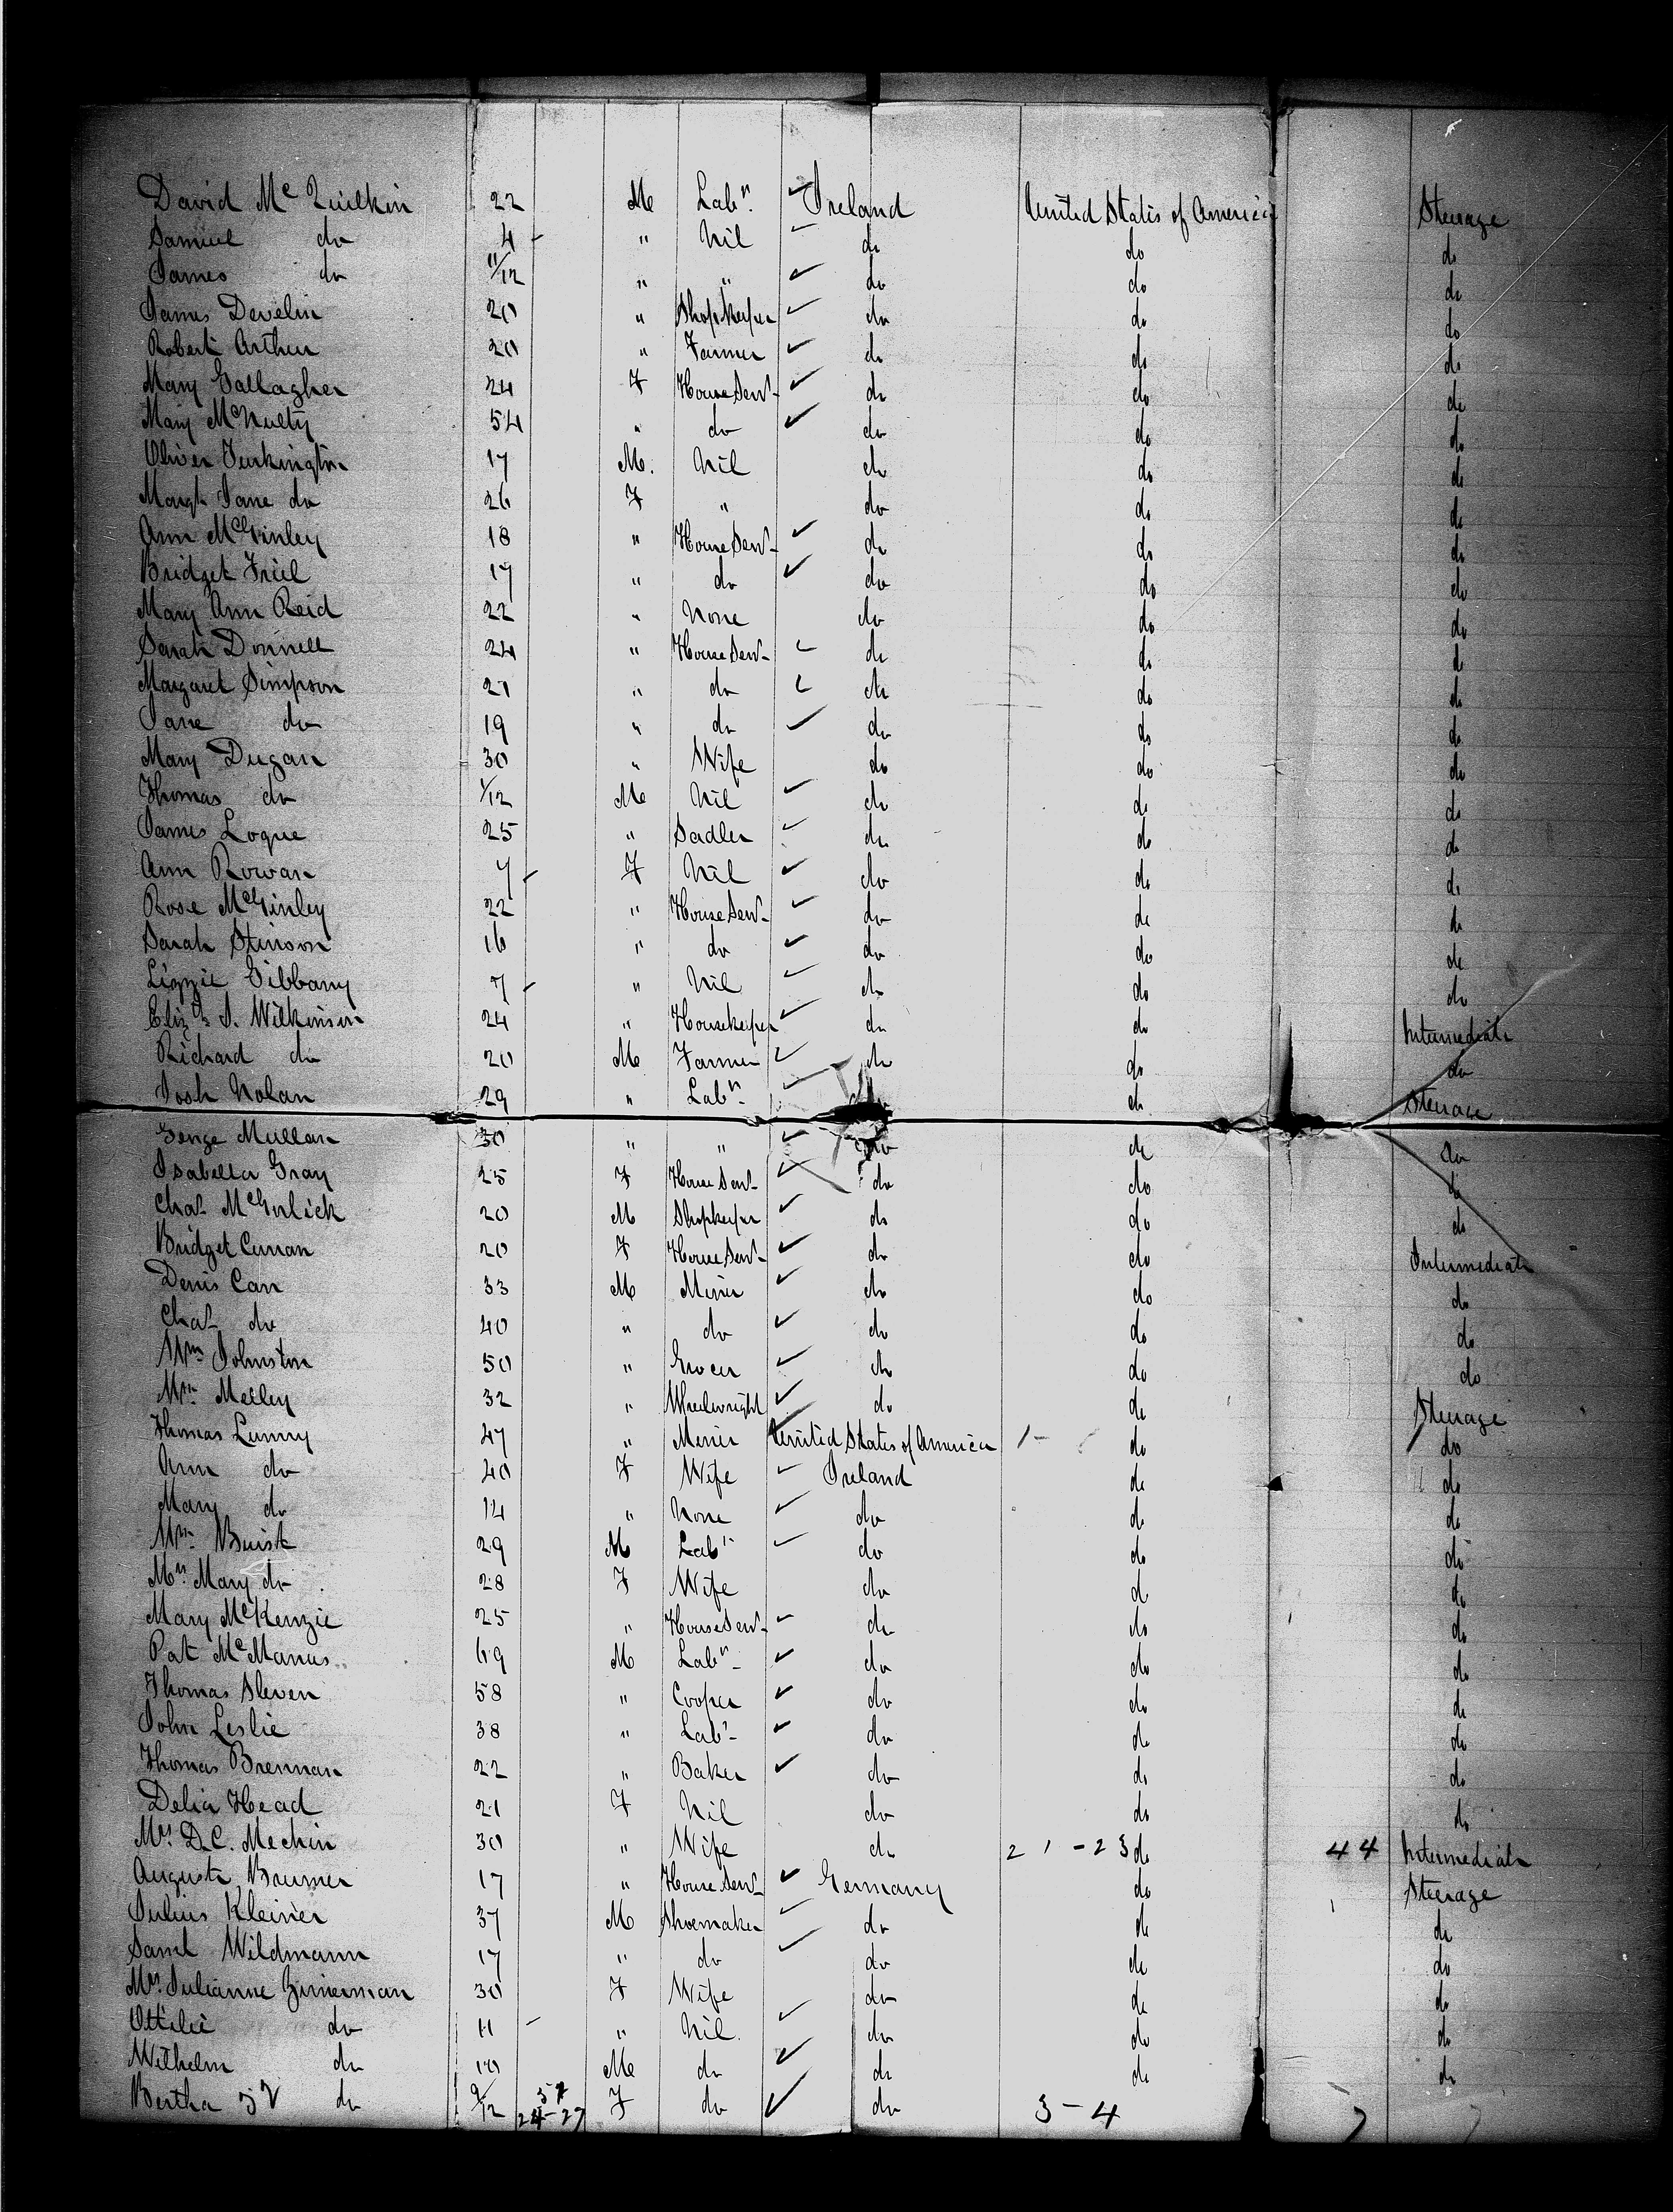 David Mc Quilkin 22 M Labr. Ireland United States of America Steerage
Samuel do 4 " Nil do do do
James do 11/12 " " do do do
James Develin 20 " Shopkeeper do do do
Robert Arthur 20 " Farmer do do do
Mary Gallagher 24 F House Servt do do do
Mary McNulty 54 " do do do do
Oliver Turkington 17 M. Nil do do do
Margt Jane do 26 F " do do do
Ann McGinley 18 " House Servt do do do
Bridget Friel 17 " do do do do
Mary Ann Reid 22 " None do do do
Sarah Donnell 24 " House Servt do do do
Margaret Simpson 21 " do do do do
Jane do 19 " do do do do
Mary Dugan 30 " Wife do do do
Thomas do 1/12 M Nil do do do
James Logue 25 " Sadler do do do
Ann Rowan 7 F Nil do do do
Rose McGinley 22 " House Servt do do do
Sarah Stinson 16 " do do do do
Lizzie Gibbany 7 " Nil do do do
Elizth S. Wilkinson 24 " Housekeeper do do Intermediate
Richard do 20 M Farmer do do do
Josh Nolan 29 " Labr do Steerage
George Mullan 30 " " do do do
Isabella Gray 25 F House Servt do do do
Chas McGorlick 20 M Shopkeeper do do do
Bridget Curran 20 F House Servt do do Intermediate
Denis Carr 33 M Miner do do do
Chas do 40 " do do do do
Wm Johnston 50 " Grocer do do do
Wm Melley 32 " Wheelwright do do Steerage
Thomas Lunny 47 " Miner United States of America 1 - do do
Ann do 40 F Wife Ireland do do
Mary do 14 " None do do do
Wm Buist 29 M Labr do do do
Mrs Mary do 28 F Wife do do do
Mary McKenzie 25 " House Servt do do do
Pat McManus 49 M Labr do do do
Thomas Sleven 58 " Cooper do do do
John Leslie 38 " Labr do do do
Thomas Brennan 22 " Baker do do do
Delia Head 21 F Nil do do do
Mrs D.C. Mechin 30 " Wife do 21 - 23 do 44 Intermediate
Augusta Brumer 17 " House Servt Germany do Steerage
Julius Kleiner 37 M Shoemaker do do do
Saml Wildmann 17 " do do do do
Mrs Julianne Zimerman 30 F Wife do do do
Ottilie do 11 " Nil. do do do
Wilhelm do 10 M do do do do
Bertha do 9/12 24-27 F do do 3 - 4